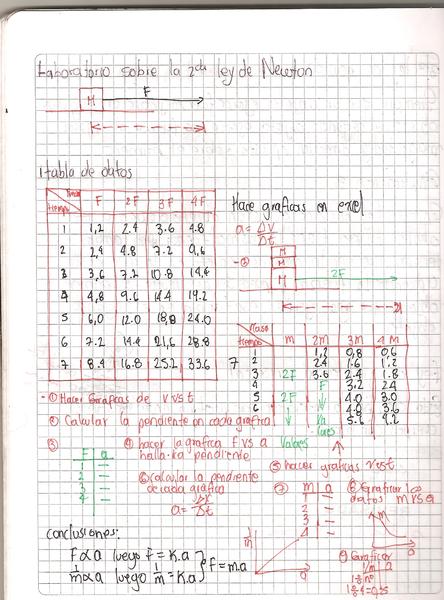 Laboratorio sobre la 2da ley de Newton
M F
1 tabla de datos
Fuerza F 2F 3F 4F
tiempo
1 1,2 2.4 3.6 4.8
2 2,4 4.8 7.2 9,6
3 3,6 7.2 10.8 14,4
4 4,8 9.6 14.4 19.2
5 6,0 12.0 18,0 24.0
6 7.2 14.4 21,6 28.8
7 8.4 16.8 25.2 33.6
Hace graficas en excel
a = ΔV
Δt
M
M
M 2F
Masa m 2M 3M 4M
tiempo
1 1,2 0,8 0,6
2 2.4 1.6 1,2
3 2F 3.6 2.4 1.8
4 F 3.2 2.4
5 2F 4.0 3.0
6 Va 4.8 3.6
7 Valores lores 5.6 4.2
① Hacer Graficas de v vs t
② Calcular la pendiente en cada grafica
③ F a
1 -
2 -
3 -
4 -
④ hacer la grafica f vs a
hallar la pendiente
⑤ hacer graficas v vs t
⑥ calcular la pendiente
de cada grafica
a = ΔV
Δt
⑦ m a
1 -
2 -
3 -
4 -
⑧ Graficar los
datos m vs a
M
a
1/m
a
⑨ Graficar
1/m a
conclusiones:
F ∝ a luego F = K.a
1/m ∝ a luego 1/m = K.a } F = m.a